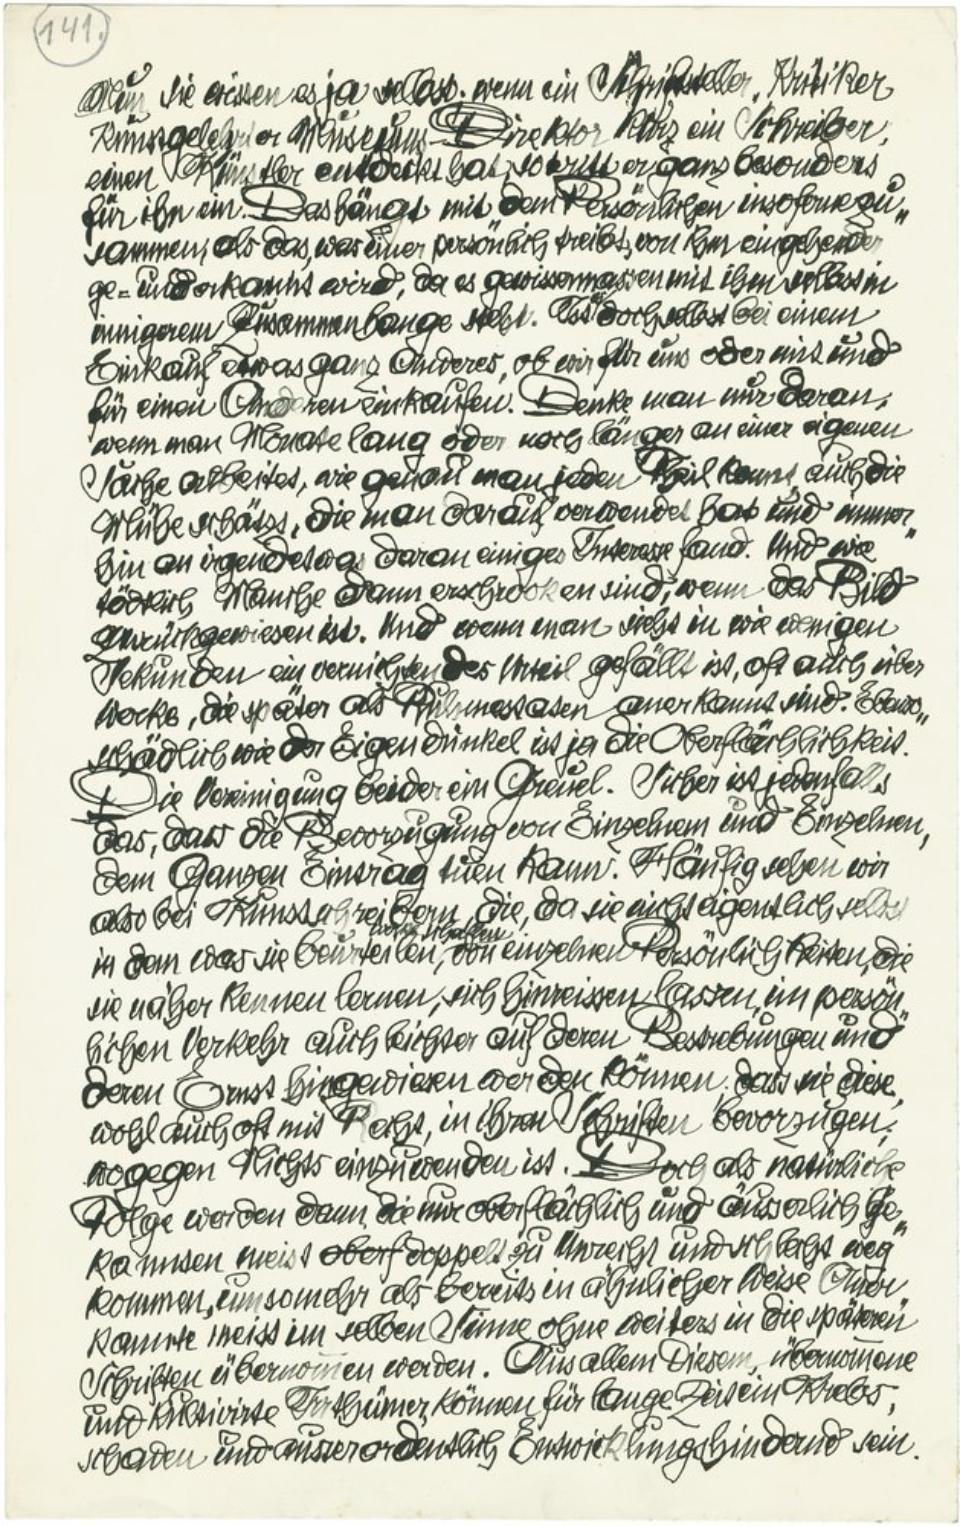 141.
Nun, sie wissen es ja selbst. wenn ein Schriftsteller, Kritiker
Kunstgelehrter Museums-Direktor kurz ein Schreiber,
einen Künstler entdeckt hat, so tritt er ganz besonders
für ihn ein. Das hängt mit dem Persönlichen insoferne zu„
sammen, als das, was einer persönlich treibt, von ihm eingehender
ge= und erkannt wird, da es gewissermassen mit ihm selbst in
innigerem Zusammenhange steht. Ist doch selbst bei einem
Einkauf etwas ganz Anderes, ob wir für uns oder mit und
für einen Anderen einkaufen. Denke man nur daran,
wenn man Monate lang oder noch länger an einer eigenen
Sache arbeitet, wie genau man jeden Theil kennt, auch die
Mühe schätzt, die man darauf verwendet hat und immer„
hin an irgendetwas daran einiges Interesse fand. Und wie
tödtlich Manche dann erschrocken sind, wenn das Bild
zurückgewiesen ist. Und wenn man sieht in wie wenigen
Sekunden ein vernichtendes Urteil gefällt ist, oft auch über
Werke, die später als Ruhmestaten anerkannt sind. Ebenso„
schädlich wie der Eigendünkel ist ja die Oberflächlichkeit.
Die Vereinigung beider ein Greuel. Sicher ist jedenfalls
das, dass die Bevorzugung von Einzelnem und Einzelnen,
dem Ganzen Eintrag tuen kann. Häufig sehen wir
also bei Kunstschreibern, die, da sie nicht eigentlich selbst
in dem was sie beurteilen, von einzelnen Persönlichkeiten, die
sie näher kennen lernen, sich hinreissen lassen, im persön„
lichen Verkehr auch leichter auf deren Bestrebungen und
deren Ernst hingewiesen werden können. dass sie diese,
wohl auch oft mit Recht, in ihren Schriften bevorzugen,
wogegen Nichts einzuwenden ist. Doch als natürliche
Folge werden dann die nur oberflächlich und äusserlich ge„
kannten meist oberf doppelt zu Unrecht und schlecht weg„
kommen, umsomehr als bereits in ähnlicher Weise Aner„
kannte meist im selben Sinne ohne weiters in die späteren
Schriften übernommen werden. Aus allem Diesem, übernommene
und kultivirte Irrthümer können für lange Zeit ein Krebs„
schaden und ausserordentlich Entwicklungshindernd sein.